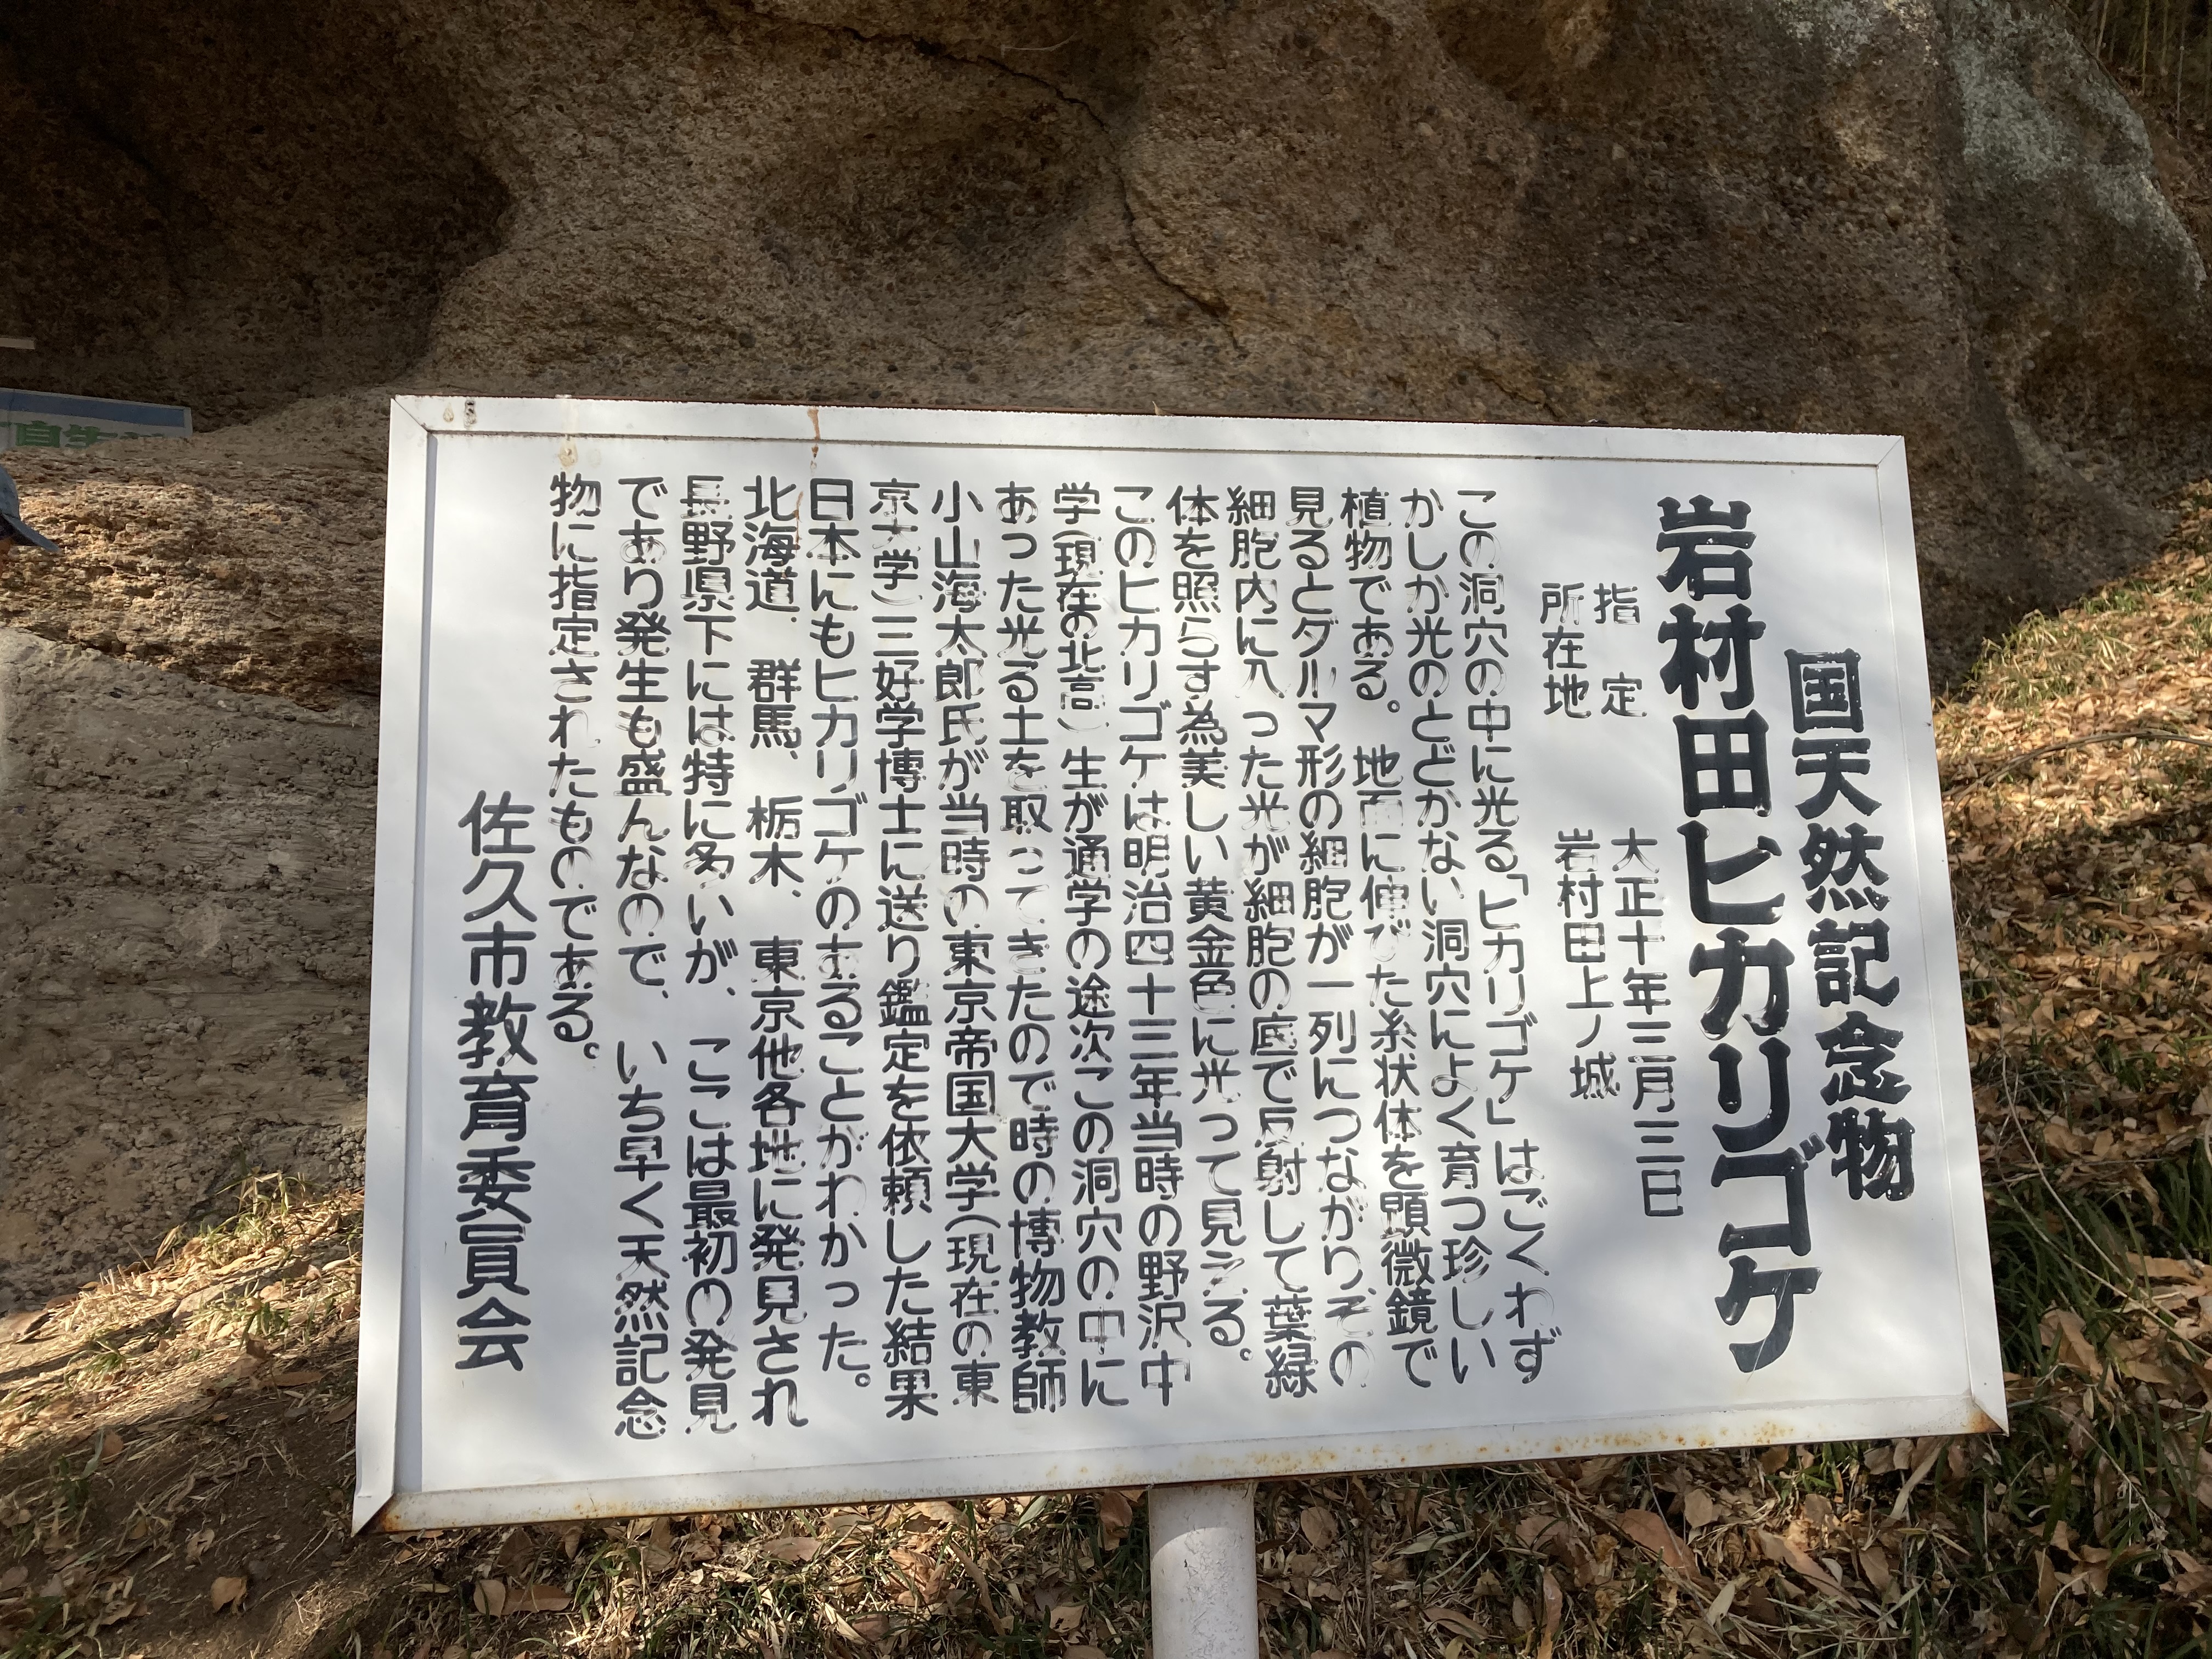 国天然記念物
岩村田ヒカリゴケ
指定 大正十年三月三日
所在地 岩村田上ノ城
この洞穴の中に光る「ヒカリゴケ」はごくわず
かしか光のとどかない洞穴によく育つ珍しい
植物である。地面に伸びた糸状体を顕微鏡で
見るとダルマ形の細胞が一列につながり、その
細胞内に入った光が細胞の底で反射して葉緑
体を照らす為美しい黄金色に光って見える。
このヒカリゴケは明治四十三年当時の野沢中
学(現在の北高)生が通学の途次この洞穴の中に
あった光る土を取ってきたので時の博物教師
小山海太郎氏が当時の東京帝国大学(現在の東
京大学)三好学博士に送り鑑定を依頼した結果
日本にもヒカリゴケのあることがわかった。
北海道、群馬、栃木、東京他各地に発見され
長野県下には特に多いが、ここは最初の発見
であり発生も盛んなので、いち早く天然記念
物に指定されたものである。
佐久市教育委員会